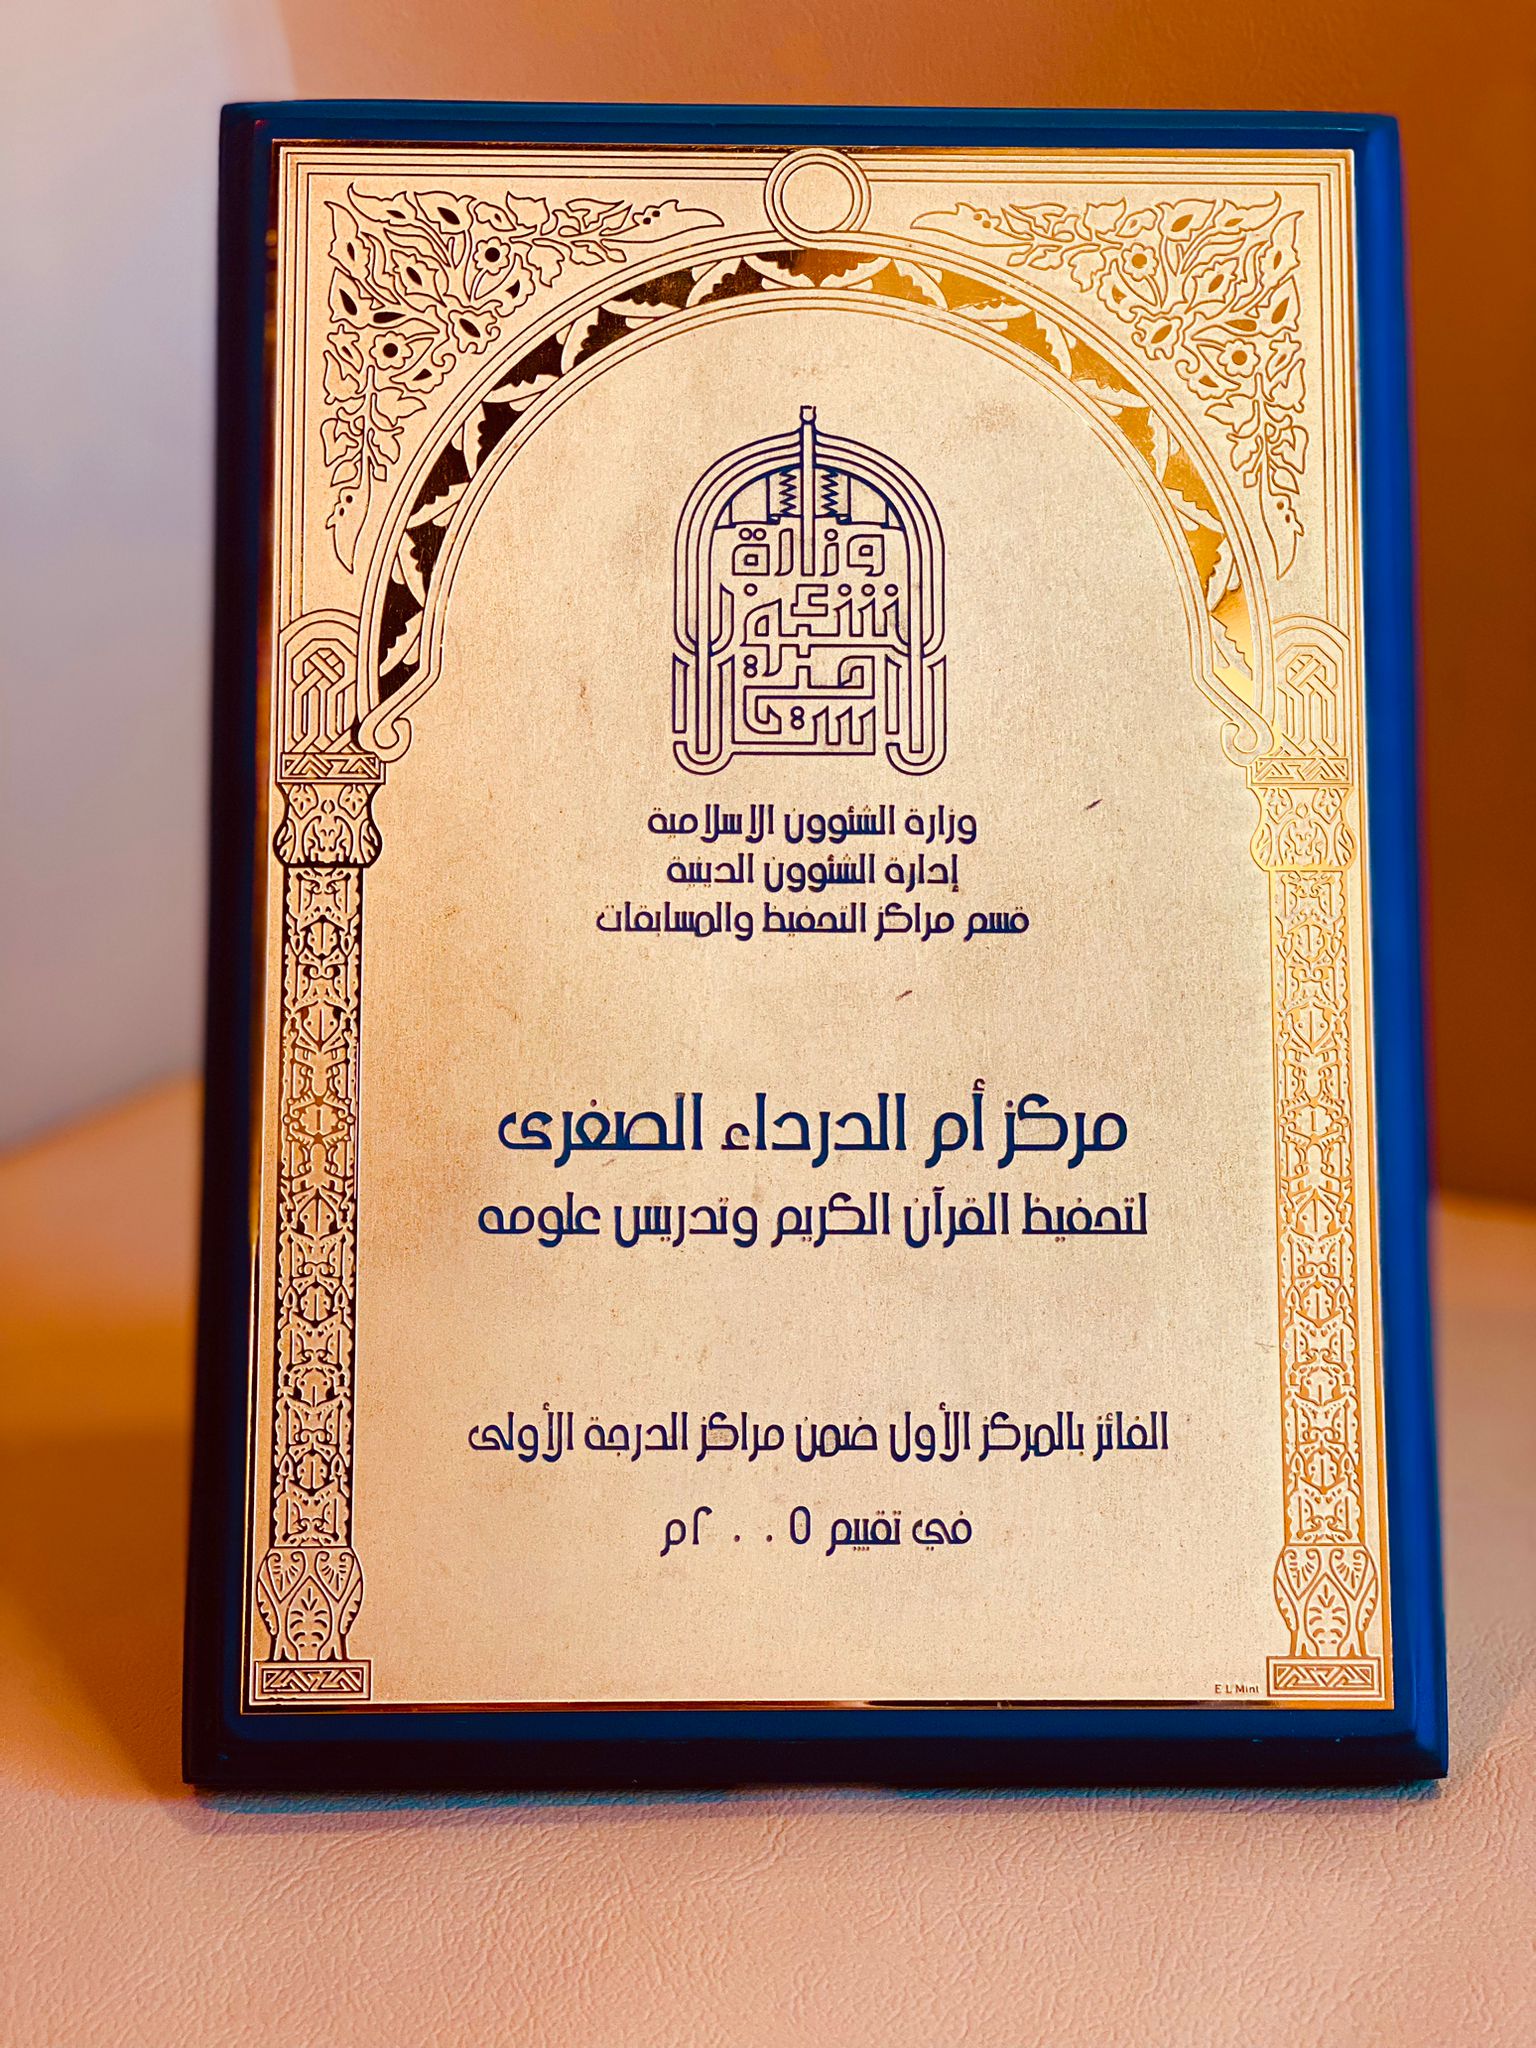 وزارة
الشئون
الاسلامية
وزارة الشئوون الاسلامية
إدارة الشئوون الدينية
قسم مراكز التحفيظ والمسابقات
مركز أم الدرداء الصغرى
لتحفيظ القرآن الكريم وتدريس علومه
الفائز بالمركز الأول ضمن مراكز الدرجة الأولى
في تقييم ٢٠٠٥م
E L Mint